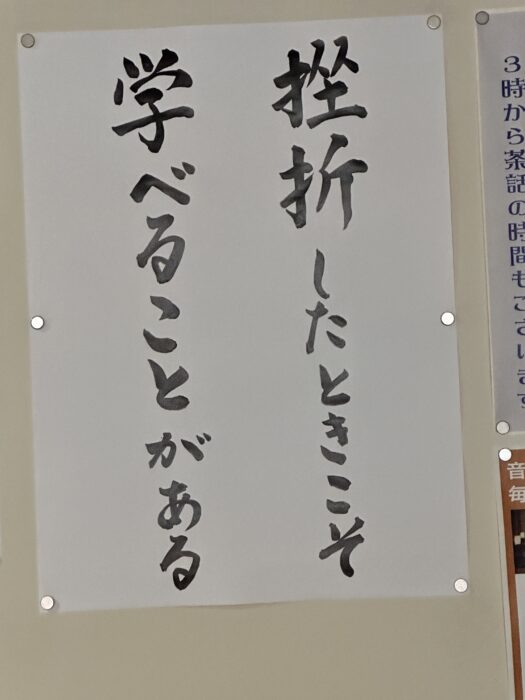 挫折したときこそ
学べることがある
3時から茶話の時間もございます
音
毎